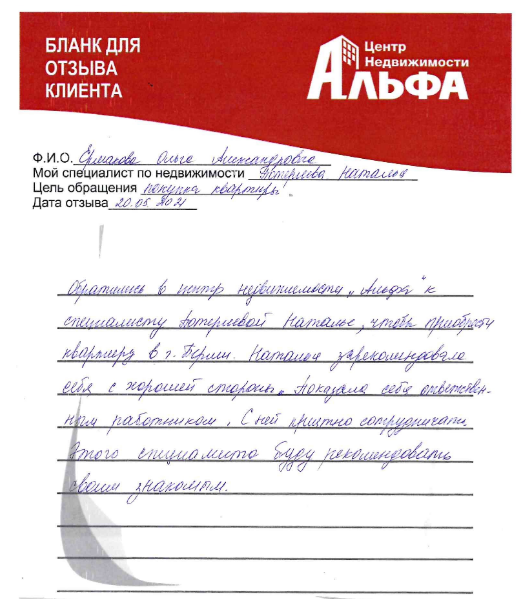 БЛАНК ДЛЯ
ОТЗЫВА
КЛИЕНТА
Центр
Недвижимости
АЛЬФА
Ф.И.О. Ермакова Ольга Александровна
Мой специалист по недвижимости Наталья
Цель обращения покупка квартиры
Дата отзыва 20.05.2021
Обратились в центр недвижимости „Альфа" к
специалисту Наталье, чтобы приобрести
квартиру в г. Перми. Наталья зарекомендовала
себя с хорошей стороны. Показала себя ответствен-
ным работником. С ней приятно сотрудничать.
Этого специалиста буду рекомендовать
своим знакомым.